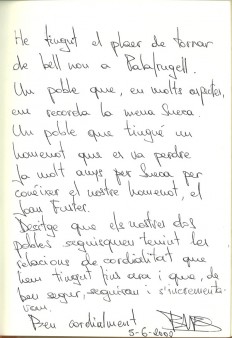 He tingut el plaer de tornar
de bell nou a Palafrugell.
Un poble que, en molts aspectes,
em recorda la meua Sueca.
Un poble que tingué un
homenot que es va perdre
fa molt anys per Sueca per
conéixer el nostre homenot, el
Joan Fuster.
Desitge que els nostres dos
pobles seguisquen tenint les
relacions de cordialitat que
hem tingut fins ara i que, de
ben segur, seguiran i s'incrementa-
ran.
Ben cordialment
5-6-2000